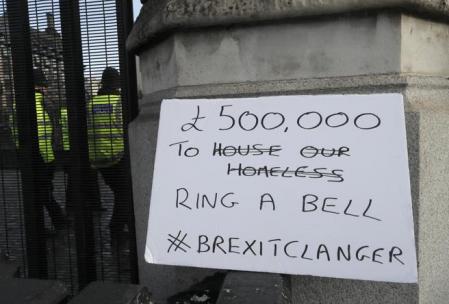 £500,000
To HOUSE OUR
HOMELESS
RING A BELL
#BREXITCLANGER